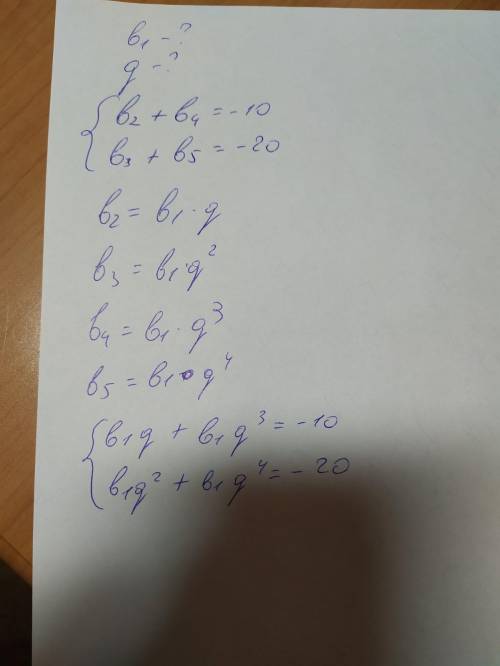 b₁ - ?
q - ?
b₂ + b₄ = -10
b₃ + b₅ = -20
b₂ = b₁ · q
b₃ = b₁ · q²
b₄ = b₁ · q³
b₅ = b₁ · q⁴
b₁q + b₁q³ = -10
b₁q² + b₁q⁴ = -20